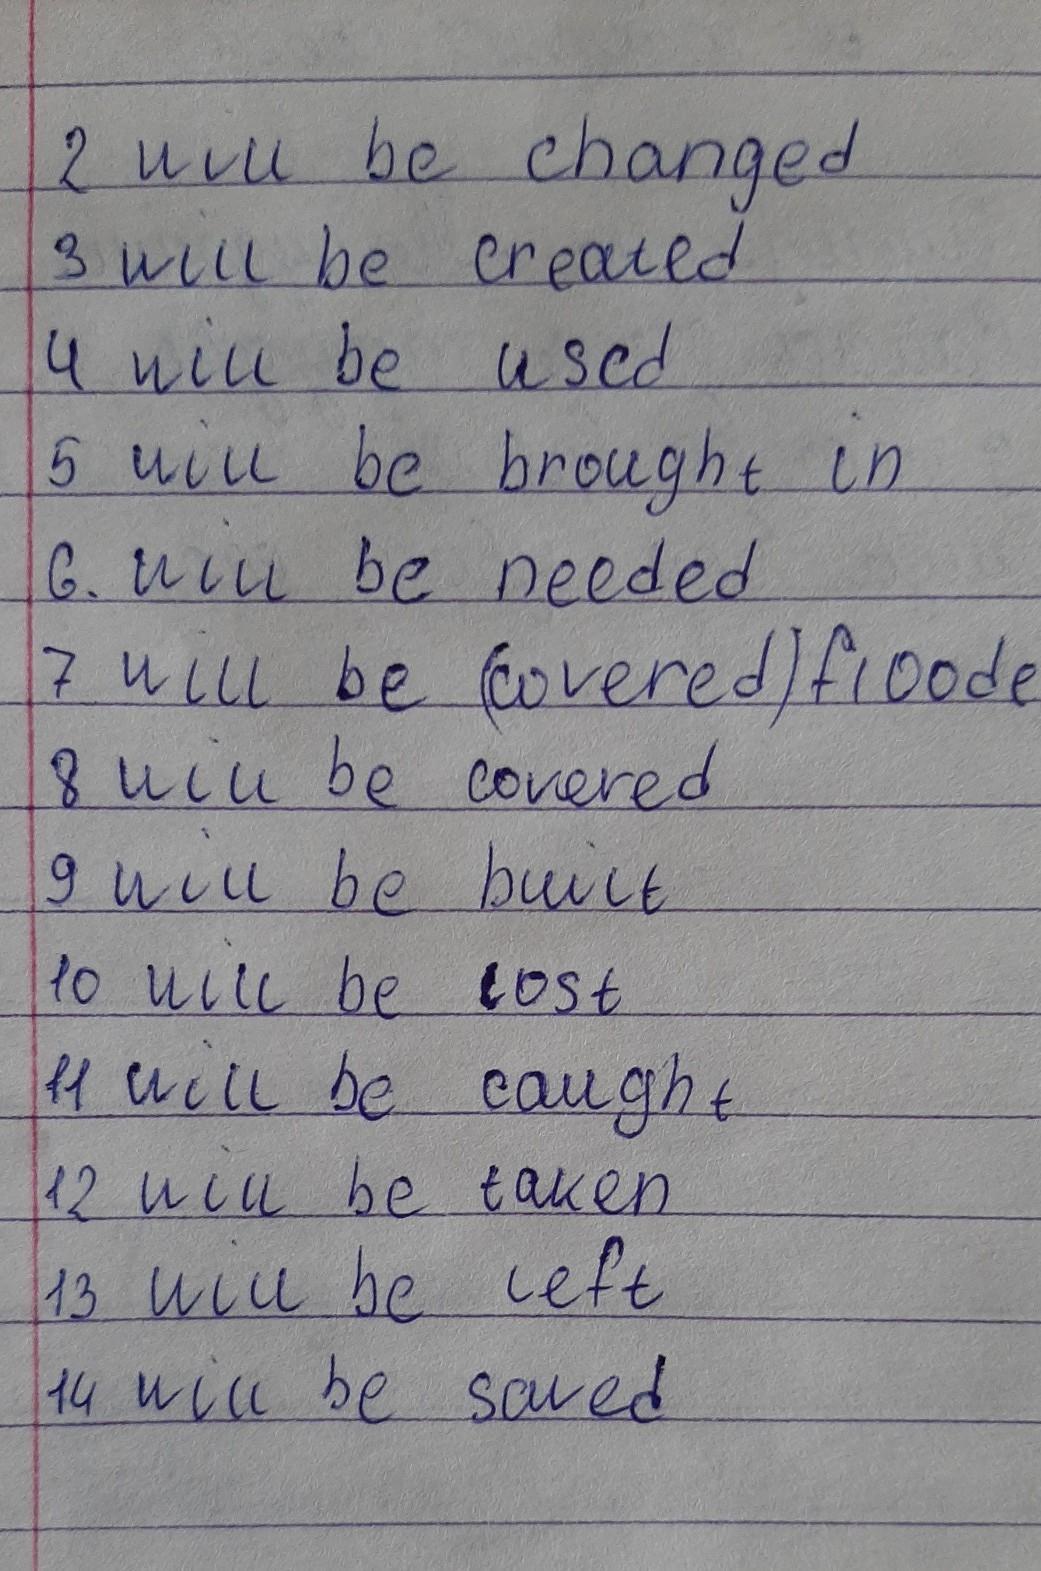 2 will be changed
3 will be created
4 will be used
5 will be brought in
6. will be needed
7 will be (covered) floode
8 will be covered
9 will be built
10 will be lost
11 will be caught
12 will be taken
13 will be left
14 will be saved